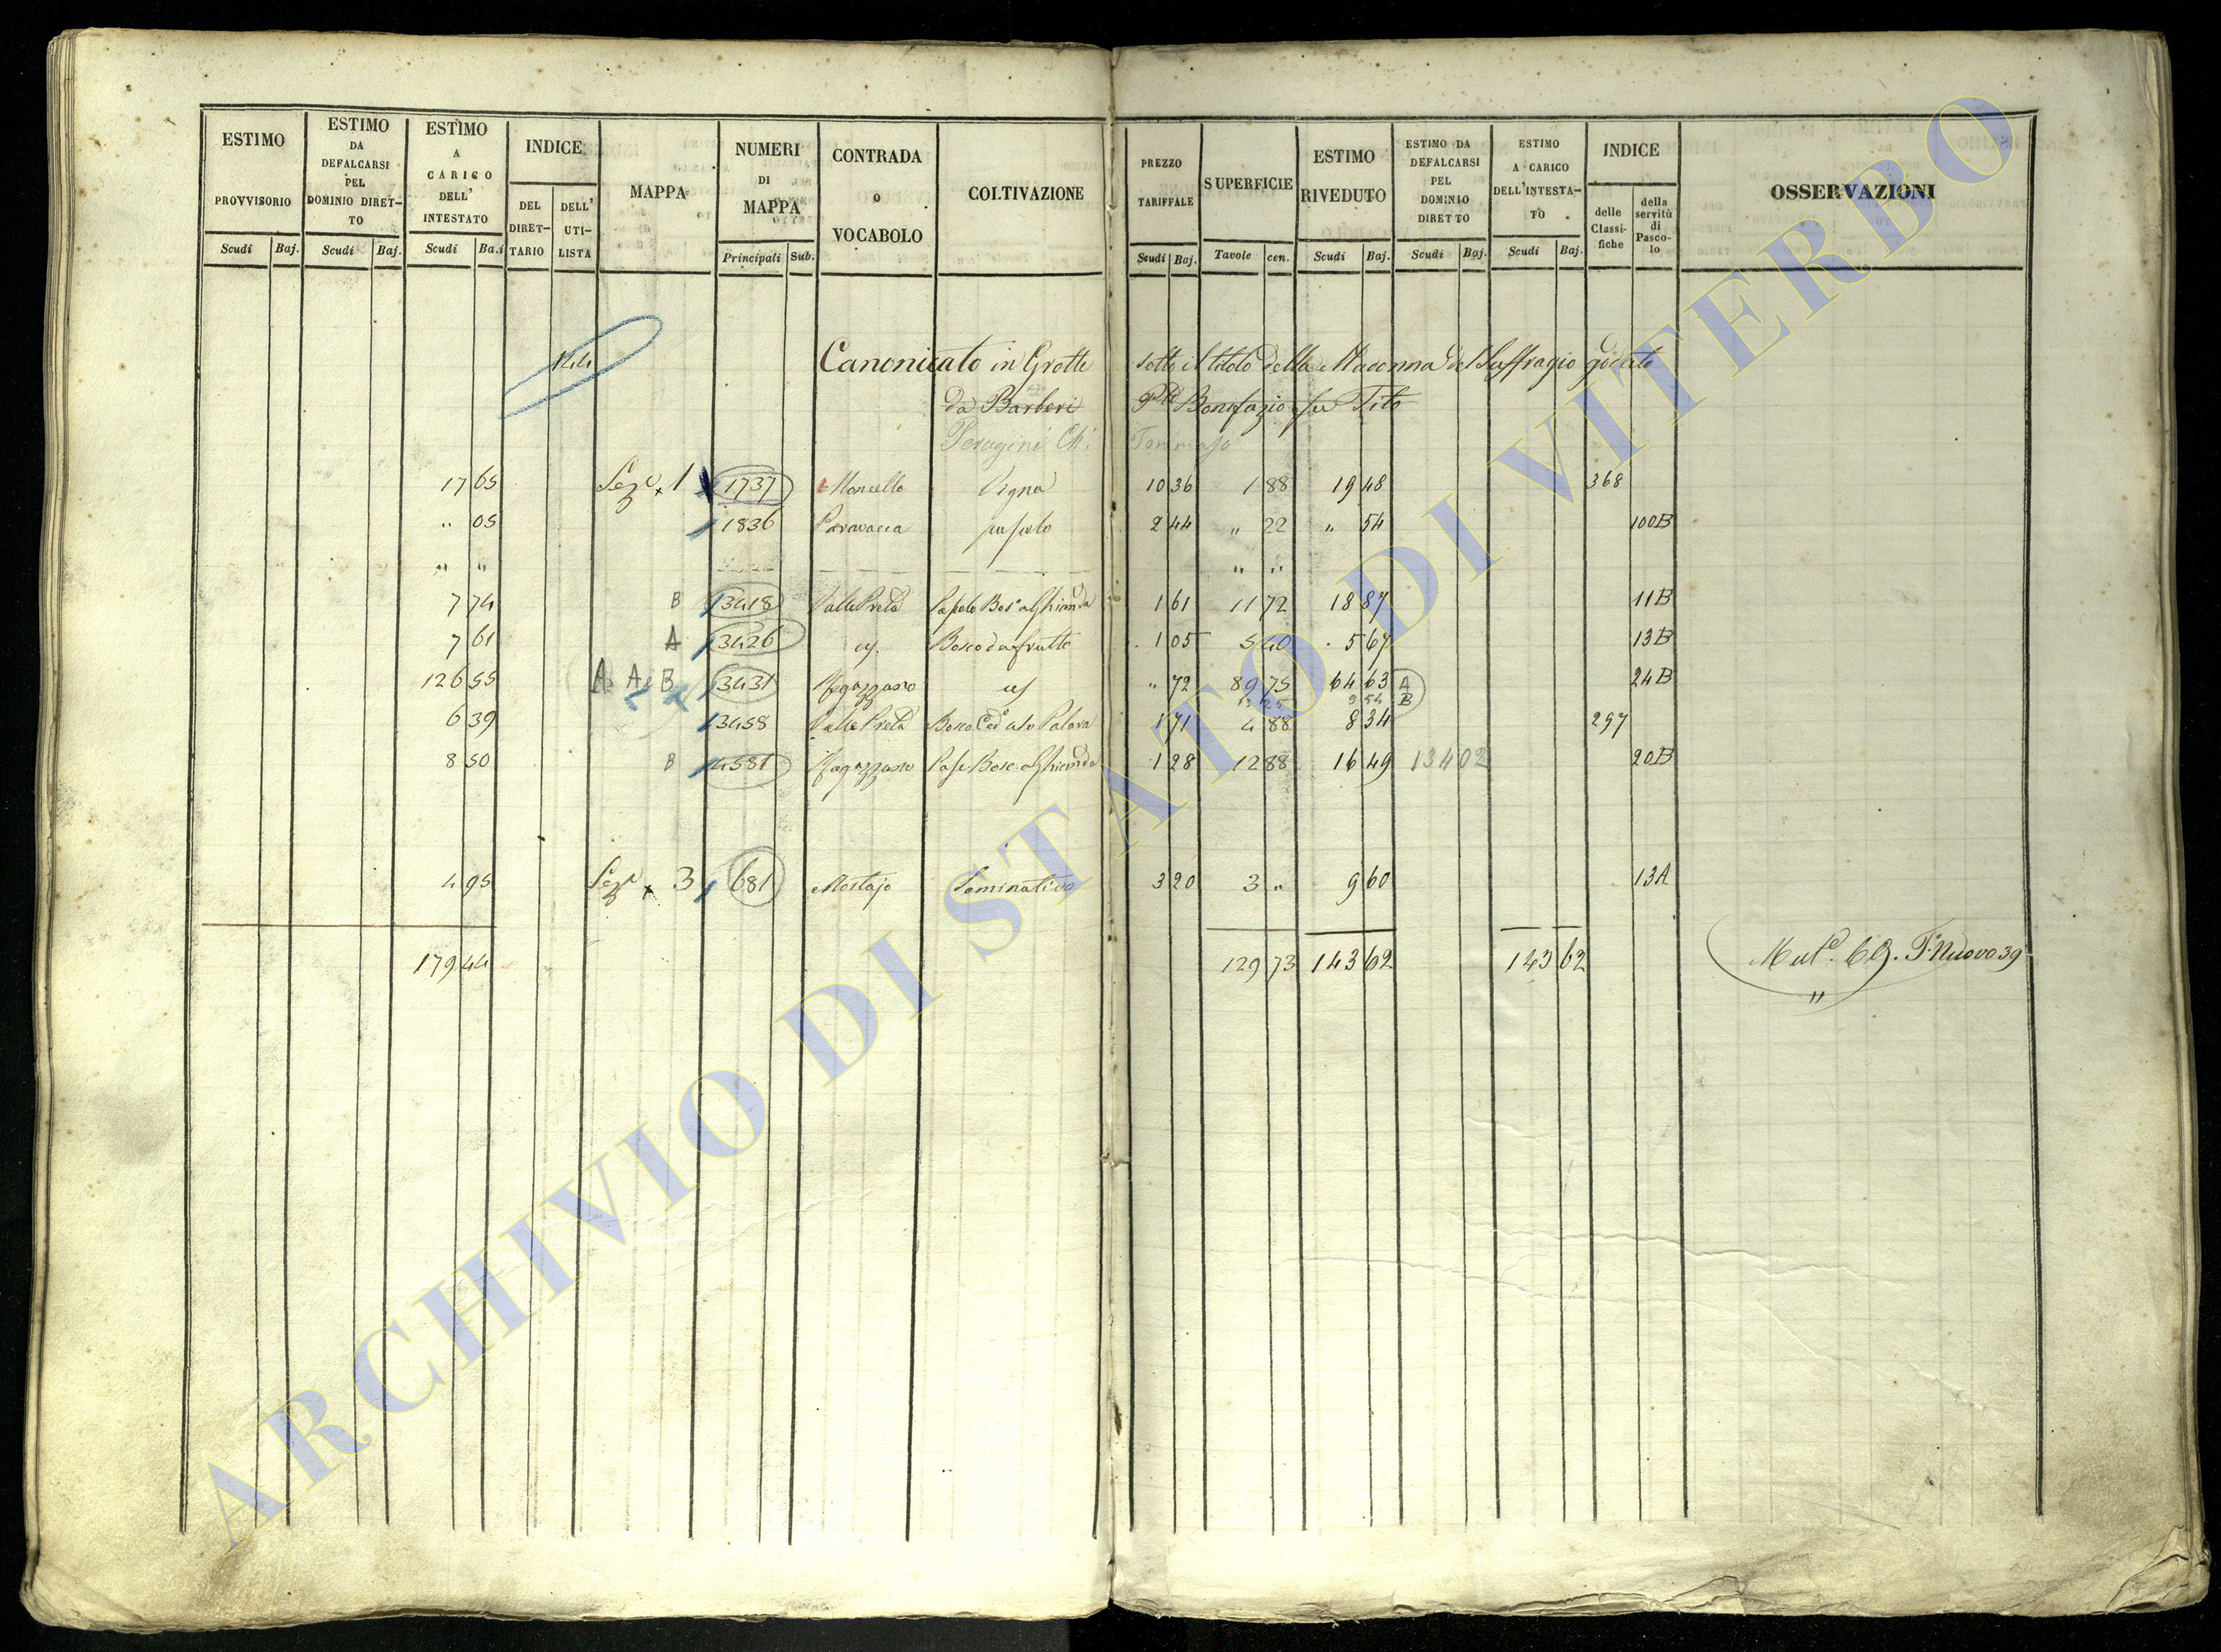 ESTIMO PROVVISORIO | ESTIMO DA DEFALCARSI PEL DOMINIO DIRET-TO | ESTIMO A CARICO DELL' INTESTATO | INDICE | MAPPA | NUMERI DI MAPPA | CONTRADA O VOCABOLO | COLTIVAZIONE | PREZZO TARIFFALE | SUPERFICIE | ESTIMO RIVEDUTO | ESTIMO DA DEFALCARSI PEL DOMINIO DIRETTO | ESTIMO A CARICO DELL'INTESTA-TO | INDICE | OSSERVAZIONI
DEL DIRET-TARIO | DELL' UTI-LISTA | delle Classi-fiche | della servitù di Pasco-lo
Scudi | Baj. | Scudi | Baj. | Scudi | Ba.i | Principali | Sub. | Scudi | Baj. | Tavole | cen. | Scudi | Baj. | Scudi | Baj. | Scudi | Baj.
144 Canonicato in Grotte sotto il titolo della Madonna del Suffragio goduto
da Barberi Bonifazio fu Tito
Perugini Tommaso
17 65 | Sez.e 1 | 1737 | Moncello | Vigna | 10 36 | 1 88 | 19 48 | 368
" 05 | 1836 | pascolo | 2 44 | " 22 | " 54 | 100B
" " | " "
7 74 | B | 3418 | Valle Preta | 1 61 | 11 72 | 18 87 | 11B
7 61 | A | 3426 | Bosco da frutto | 1 05 | 5 40 | 5 67 | 13B
126 55 | A A B | 3431 | " 72 | 89 75 | 64 63 | A | 24B
9 54 | B
6 39 | 3458 | Valle Preta | Bosco | 1 71 | 4 88 | 8 34 | 297
8 50 | B | 4581 | 1 28 | 12 88 | 16 49 | 134 02 | 20B
4 95 | Sez.e 3 | 681 | Seminativo | 3 20 | 3 " | 9 60 | 13A
179 44 | 129 73 | 143 62 | 143 62 | Nuovo 39
"
ARCHIVIO DI STATO DI VITERBO